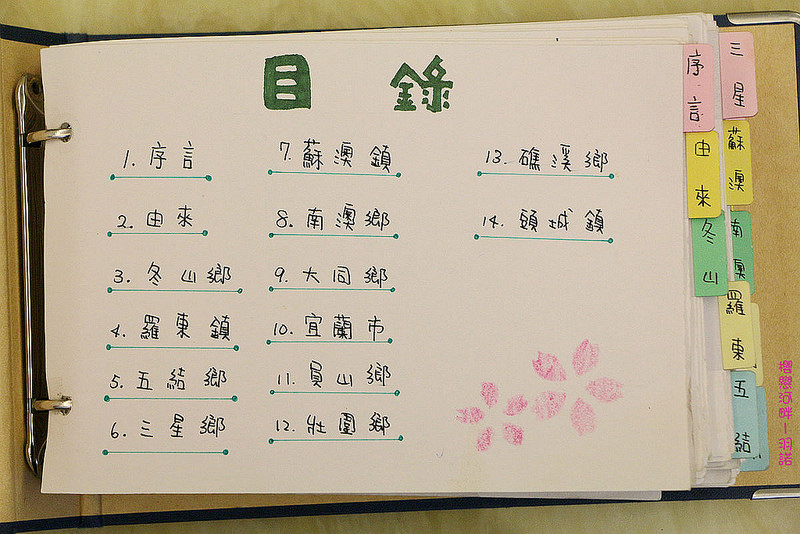 目錄
1. 序言
2. 由來
3. 冬山鄉
4. 羅東鎮
5. 五結鄉
6. 三星鄉
7. 蘇澳鎮
8. 南澳鄉
9. 大同鄉
10. 宜蘭市
11. 員山鄉
12. 壯圍鄉
13. 礁溪鄉
14. 頭城鎮
序言
由來
冬山
三星
蘇澳
南澳
羅東
五結
櫻戀河畔—羽諾